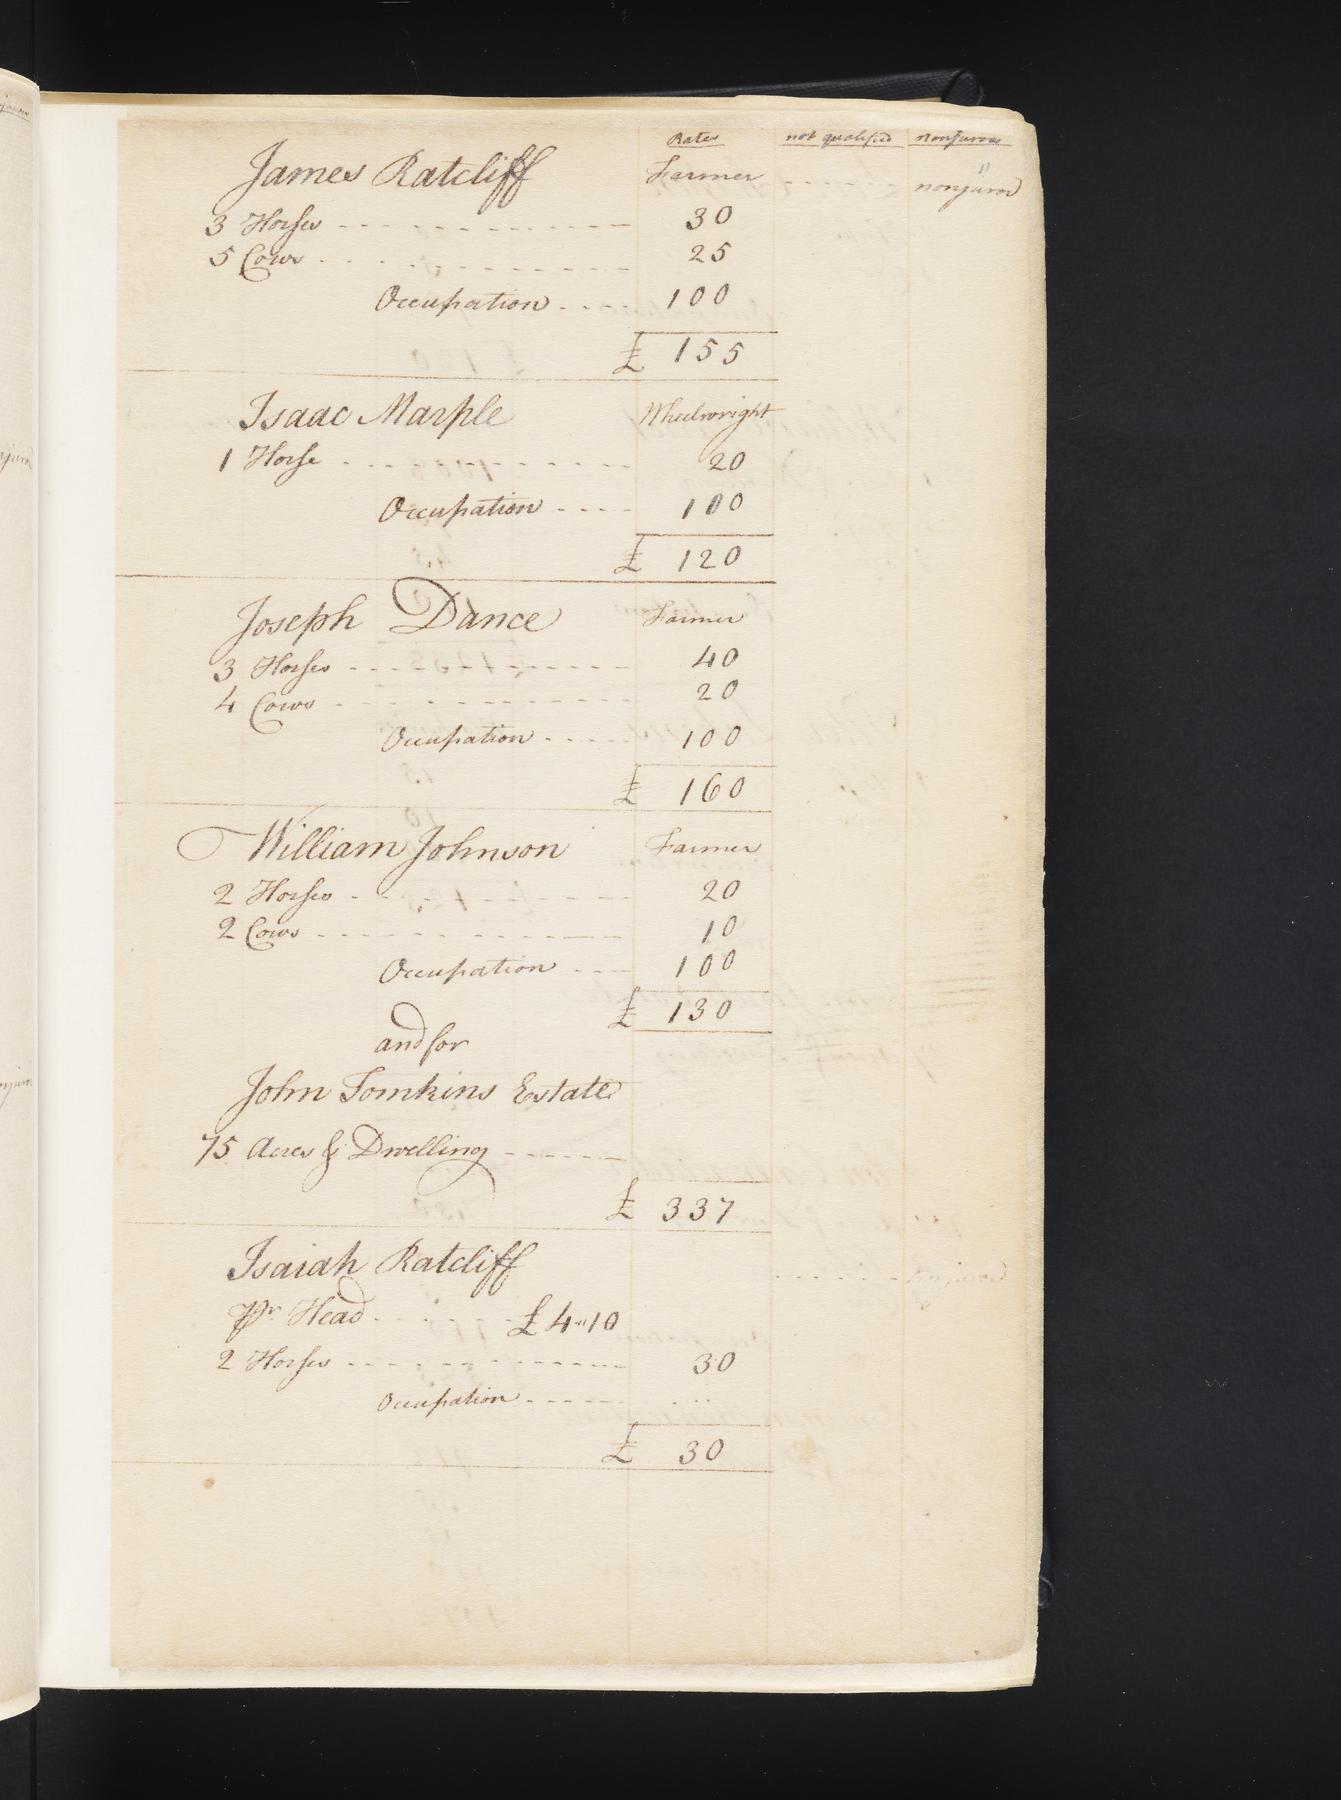 Rates not qualified nonjurors
James Ratcliff Farmer - - - - - - nonjuror
3 Horses - - - - - - - - - - - - 30
5 Cows - - - - - - - - - - - - 25
Occupation - - - - 100
£ 155
Isaac Marple Wheelwright
1 Horse - - - - - - - - - - - - 20
Occupation - - - - 100
£ 120
Joseph Dance Farmer
3 Horses - - - - - - - - - - - - 40
4 Cows - - - - - - - - - - - - 20
Occupation - - - - - 100
£ 160
William Johnson Farmer
2 Horses - - - - - - - - - - - - 20
2 Cows - - - - - - - - - - - - 10
Occupation - - - 100
£ 130
and for
John Tomkins Estate
75 Acres & Dwelling - - - - - -
£ 337
Isaiah Ratcliff - - - - - - nonjuror
Pr. Head - - - - - £4"10
2 Horses - - - - - - - - - - - - 30
Occupation - - - - - - ...
£ 30